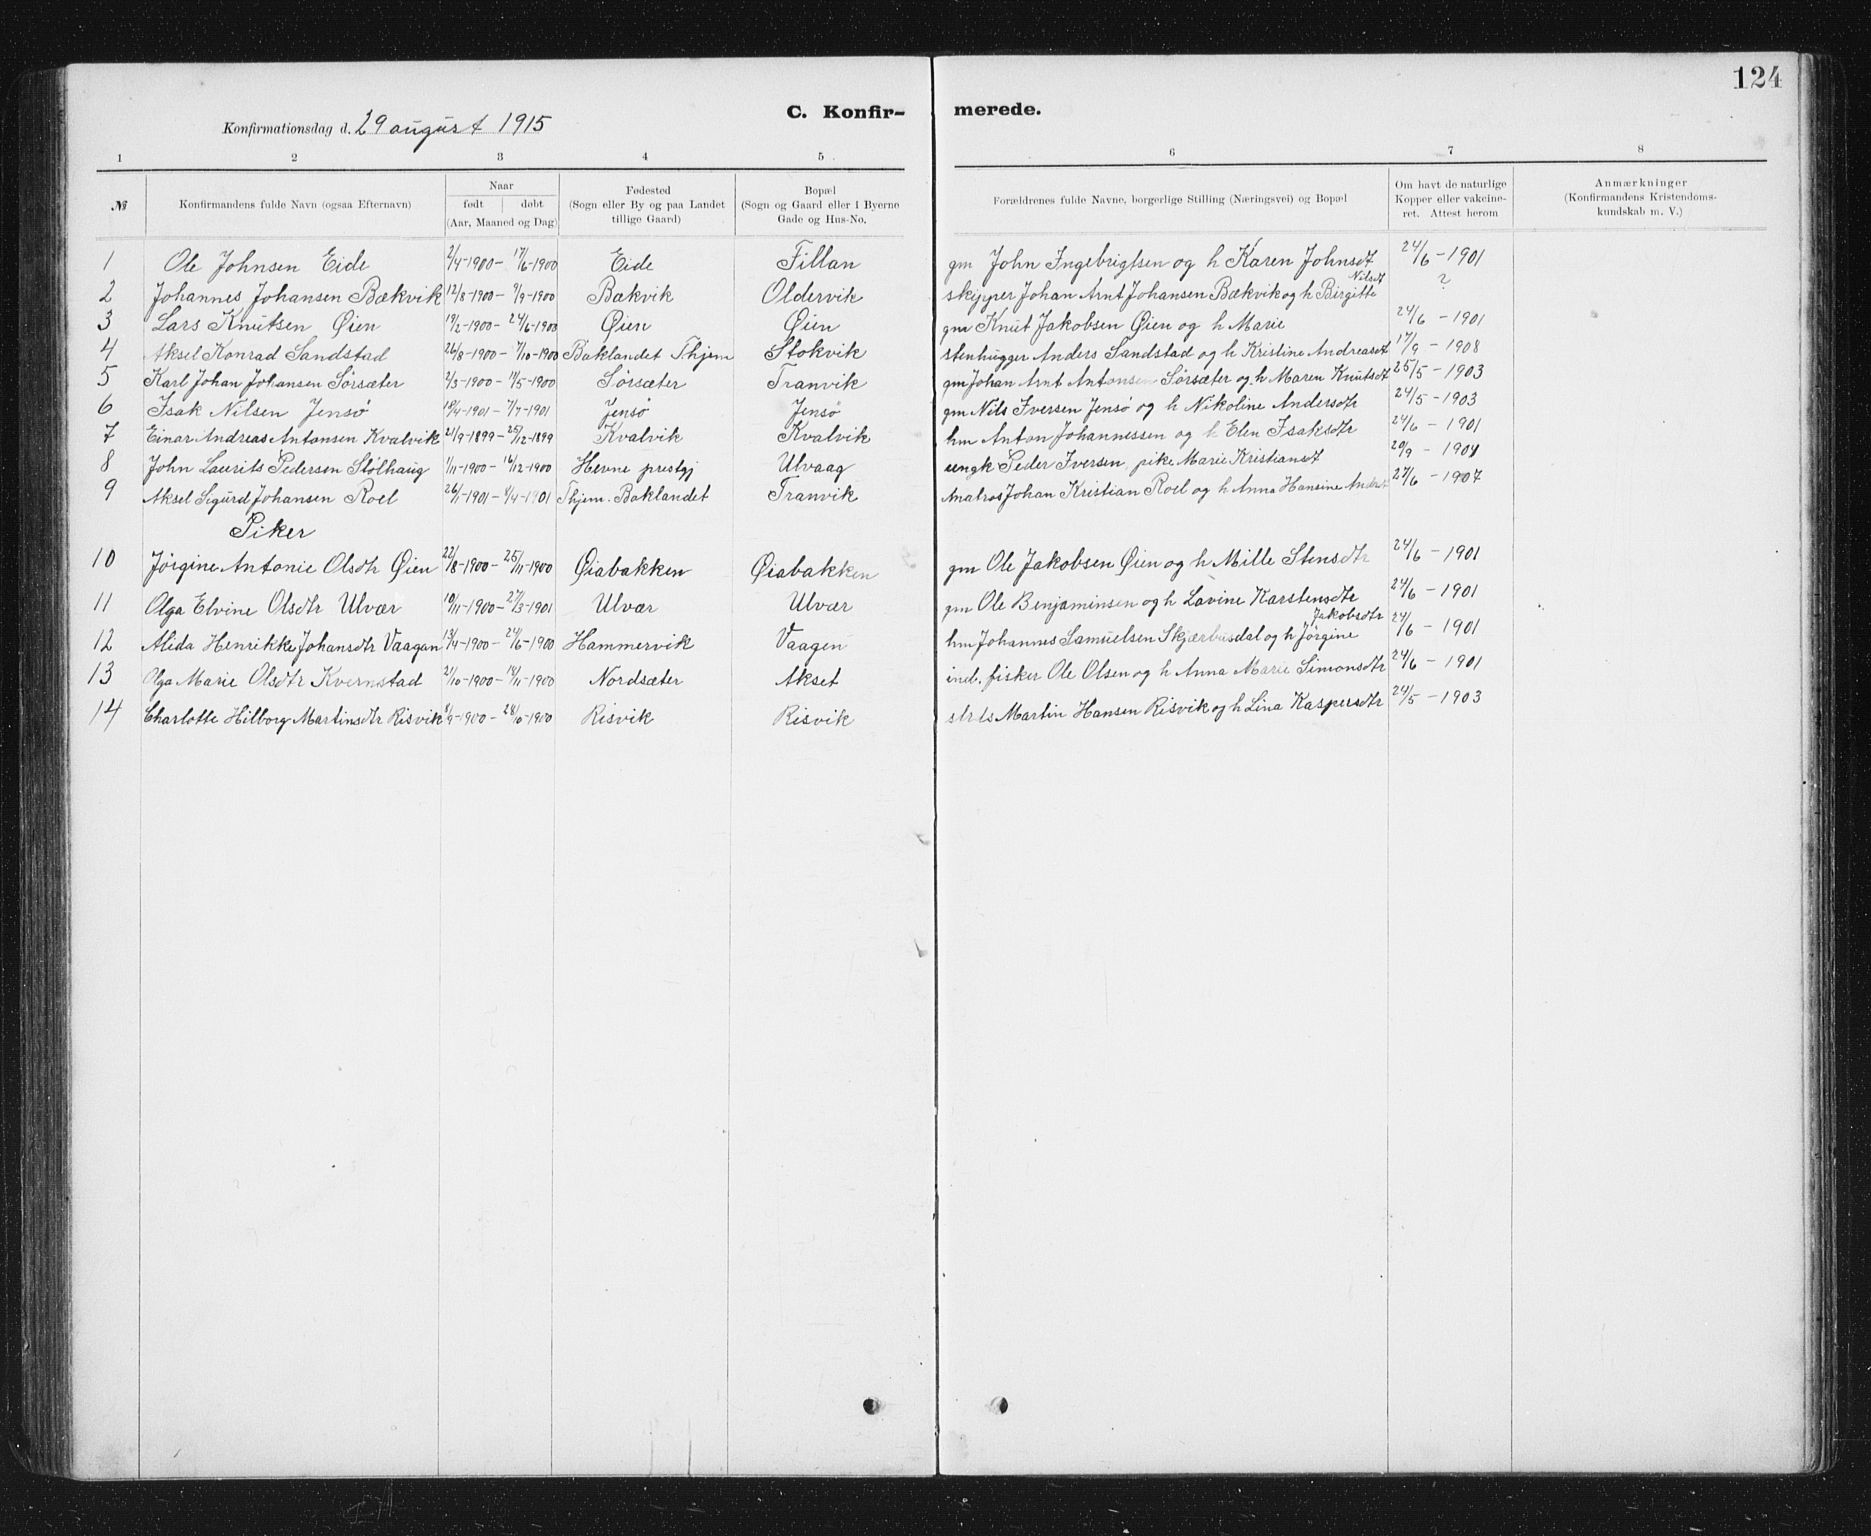 124
C. Konfir- merede.
Konfirmationsdag d. 29 august 1915
1 2 3 4 5 6 7 8
№ Konfirmandens fulde Navn (ogsaa Efternavn) Naar født døbt (Aar, Maaned og Dag) Fødested (Sogn eller By og paa Landet tillige Gaard) Bopæl (Sogn og Gaard eller i Byerne Gade og Hus-No. Forældrenes fulde Navne, borgerlige Stilling (Næringsvei) og Bopæl Om havt de naturlige Kopper eller vakcineret. Attest herom Anmærkninger (Konfirmandens Kristendomskundskab m. V.)
1 Ole Johnsen Eide 2/4-1900 - 17/6-1900 Eide Fillan gm John Ingebrigtsen og h Karen Johnsdt 24/6 - 1901
2 Johannes Johansen Bækvik 12/8-1900 - 9/9-1900 Bækvik Oldervik skipper Johan Arnt Johansen Bækvik og h Birgitte Nilsdt ?
3 Lars Knutsen Øien 19/2-1900 - 24/6-1900 Øien Øien gm Knut Jakobsen Øien og h Marie 24/6 - 1901
4 Aksel Konrad Sandstad 26/8-1900 - 7/10-1900 Baklandet Thjem Stokvik stenhugger Anders Sandstad og h Kristine Andreasdt 17/9 - 1908
5 Karl Johan Johansen Sørsæter 2/3-1900 - 14/5-1900 Sørsæter Tranvik gm Johan Arnt Antonsen Sørsæter og h Maren Knutsdt 25/5 - 1903
6 Isak Nilsen Jensø 18/4-1901 - 7/7-1901 Jensø Jensø gm Nils Iversen Jensø og h Nikoline Andersdtr 24/5 - 1903
7 Einar Andreas Antonsen Kvalvik 21/9-1899 - 25/12-1899 Kvalvik Kvalvik hm Anton Johannessen og h Elen Isaksdtr 24/6 - 1901
8 John Laurits Pedersen Stølhaug 1/11-1900 - 16/12-1900 Hevne prestgj Ulvaag ungk Peder Iversen, pike Marie Kristiansdt 20/9 - 1904
9 Aksel Sigurd Johansen Roel 26/1-1901 - 8/4-1901 Thjem. Baklandet Tranvik Matros Johan Kristian Roel og h Anna Hansine 27/6 - 1907
Piker
10 Jørgine Antonie Olsdtr Øien 22/8-1900 - 25/11-1900 Øiabakken Øiabakken gm Ole Jakobsen Øien og h Mille Stensdtr 24/6 - 1901
11 Olga Elvine Olsdtr Ulvær 10/11-1900 - 27/3-1901 Ulvær Ulvær gm Ole Benjaminsen og h Lavine Karstensdtr 24/6 - 1901
12 Alida Henrikke Johansdtr Vaagan 13/4-1900 - 24/6-1900 Hammervik Vaagen hm Johannes Samuelsen Skjærbusdal og h Jørgine Jakobsdtr 24/6 - 1901
13 Olga Marie Olsdtr Kvernstad 2/10-1900 - 14/11-1900 Nordsæter Akset ind. fisker Ole Olsen og h Anna Marie Simonsdtr 24/6 - 1901
14 Charlotte Hilborg Martinsdtr Risvik 8/9-1900 - 28/10-1900 Risvik Risvik Martin Hansen Risvik og h Lina Kaspersdtr 24/5 - 1903